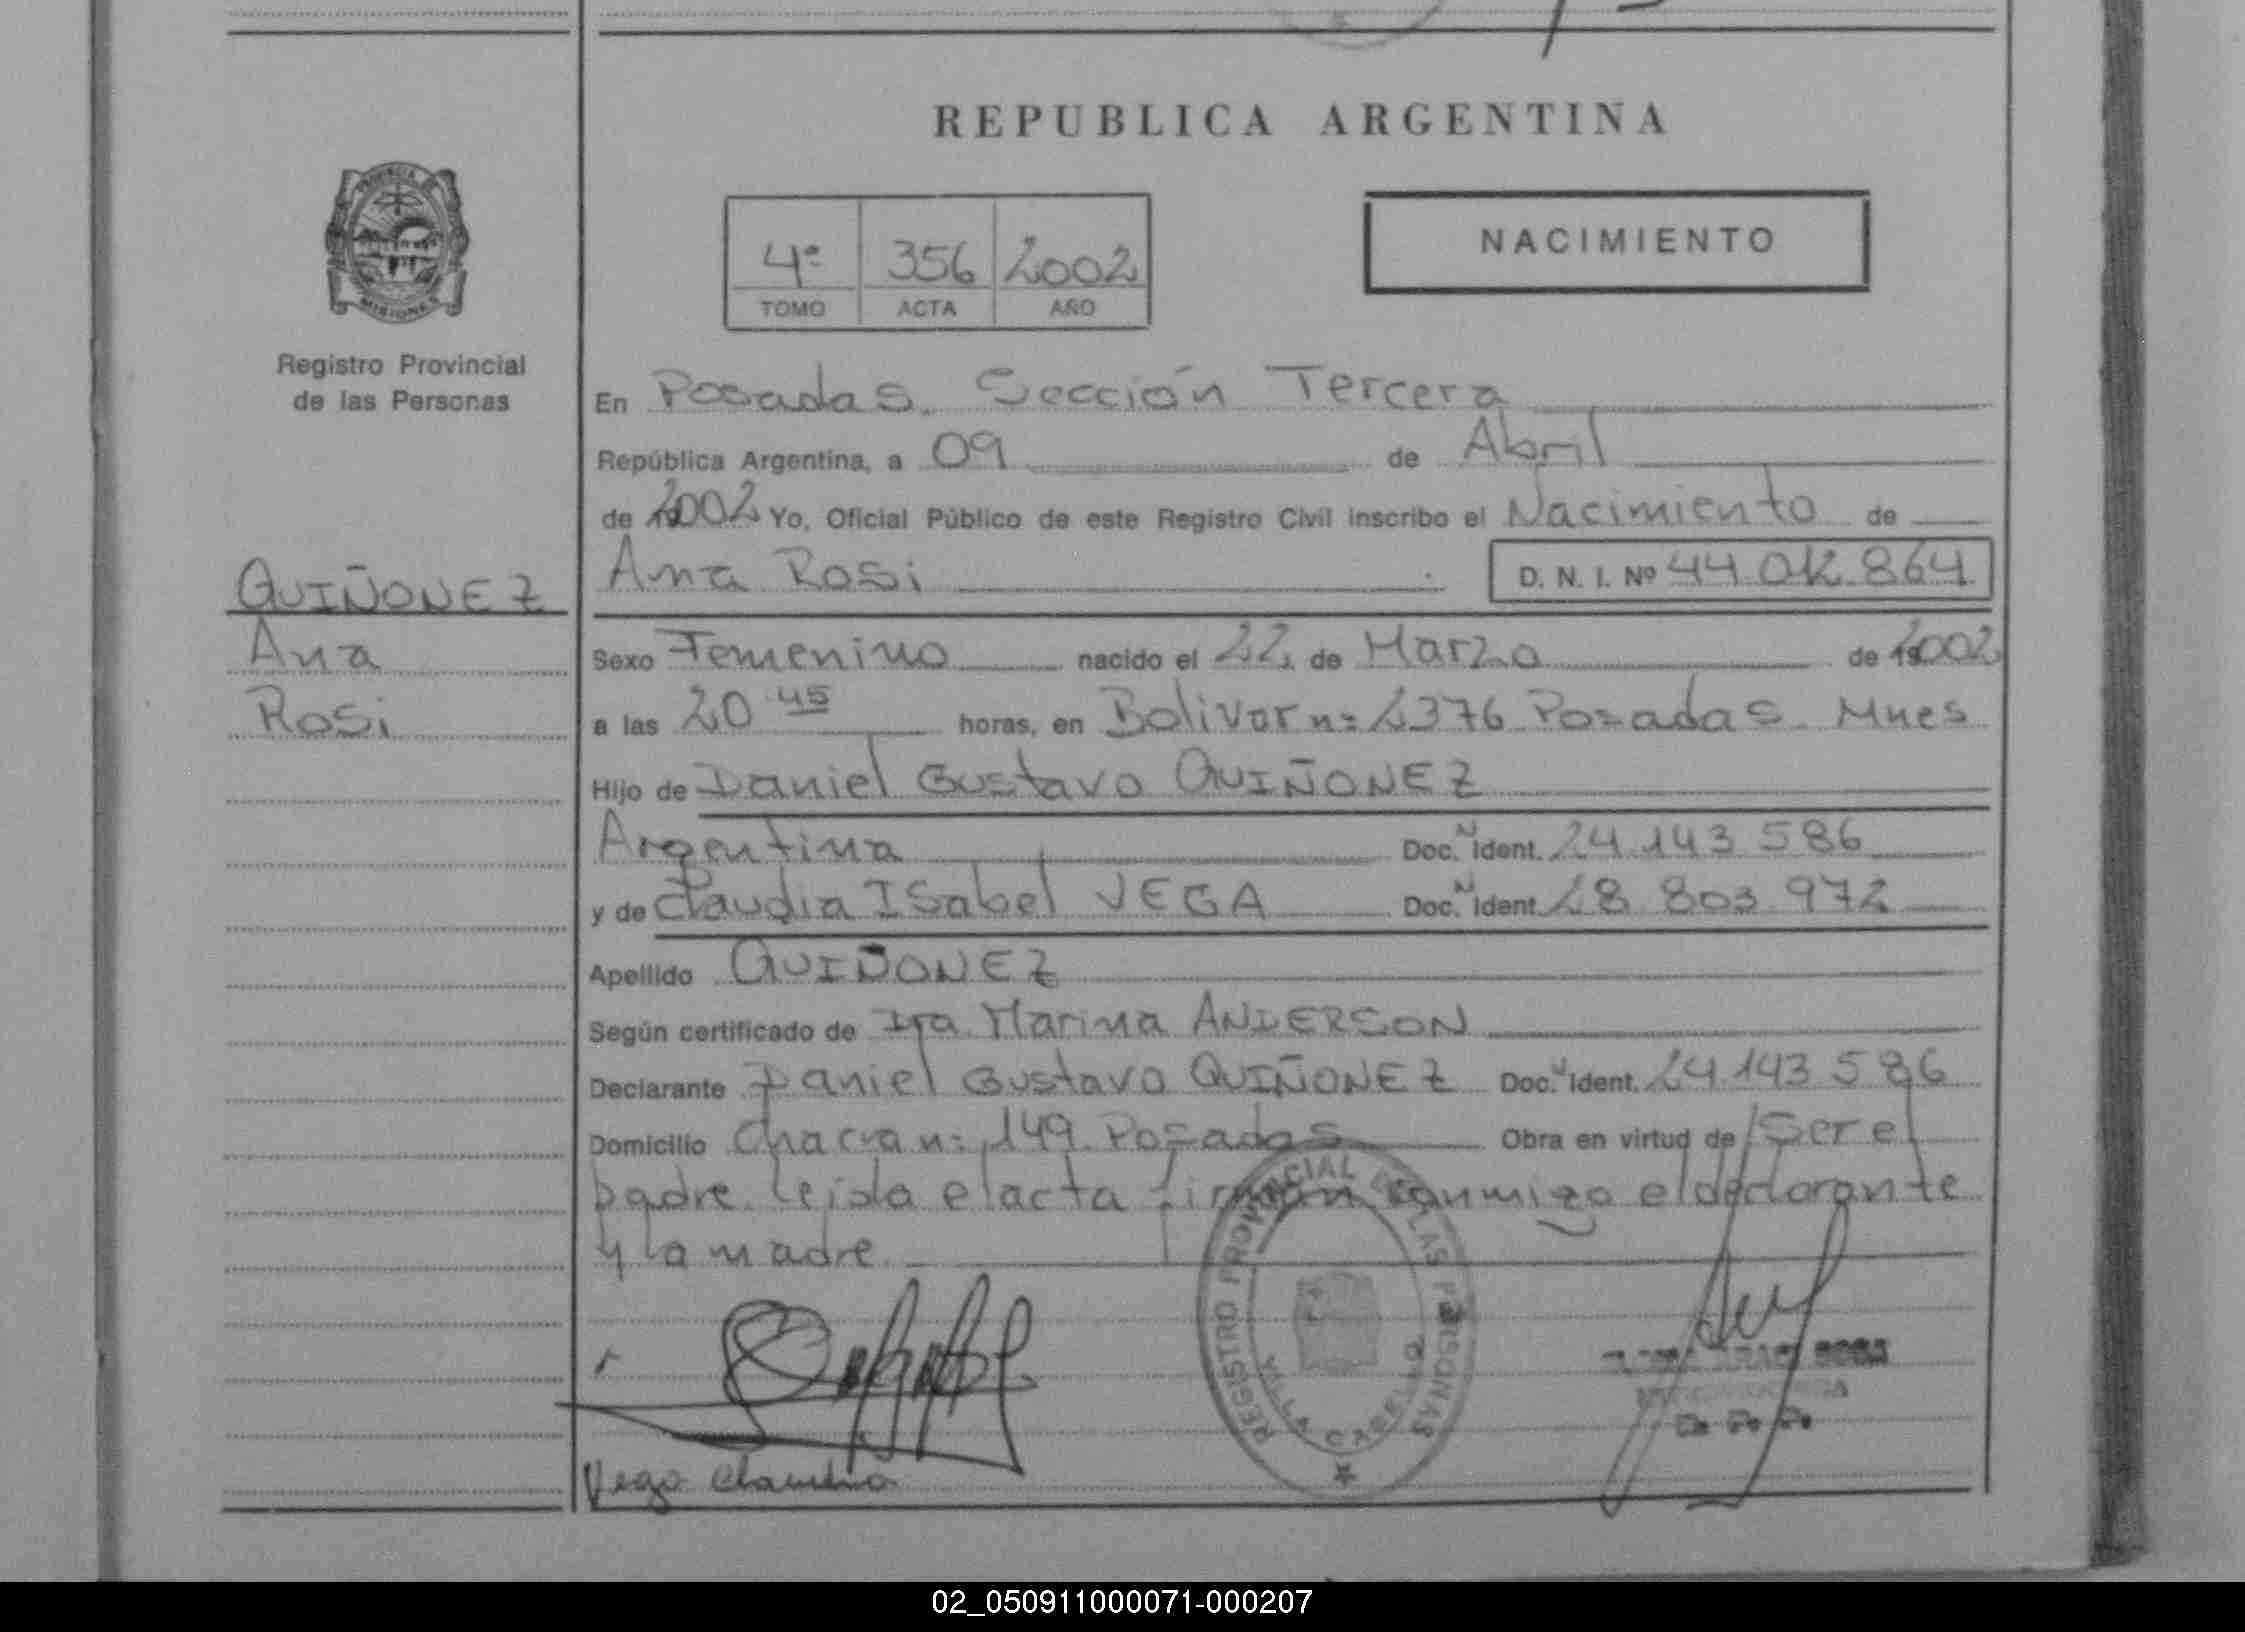 REPUBLICA ARGENTINA
PROVINCIA DE
MISIONES
Registro Provincial
de las Personas
NACIMIENTO
4º 356 2002
TOMO ACTA AÑO
En Posadas. Sección Tercera
República Argentina, a 09 de Abril
de 2002 Yo, Oficial Público de este Registro Civil inscribo el Nacimiento de
Ana Rosi D. N. I. Nº 44.012.864
QUIÑONEZ
Ana
Rosi
Sexo Femenino nacido el 22 de Marzo de 2002
a las 20.45 horas, en Bolivar nº 2376 Posadas Mnes
Hijo de Daniel Gustavo QUIÑONEZ
Argentina Doc. N Ident. 24.143.586
y de Claudia ISabel VEGA Doc. N Ident. 28.803.972
Apellido QUIÑONEZ
Según certificado de Marina ANDERSON
Declarante Daniel Gustavo QUIÑONEZ Doc. N Ident. 24.143.586
Domicilio Chacra nº 149 Posadas Obra en virtud de Ser el
padre. leida el acta firman conmigo el declarante
y la madre.
REGISTRO PROVINCIAL DE LAS PERSONAS
VILLA CABELLO
Vega Claudia
02_050911000071-000207